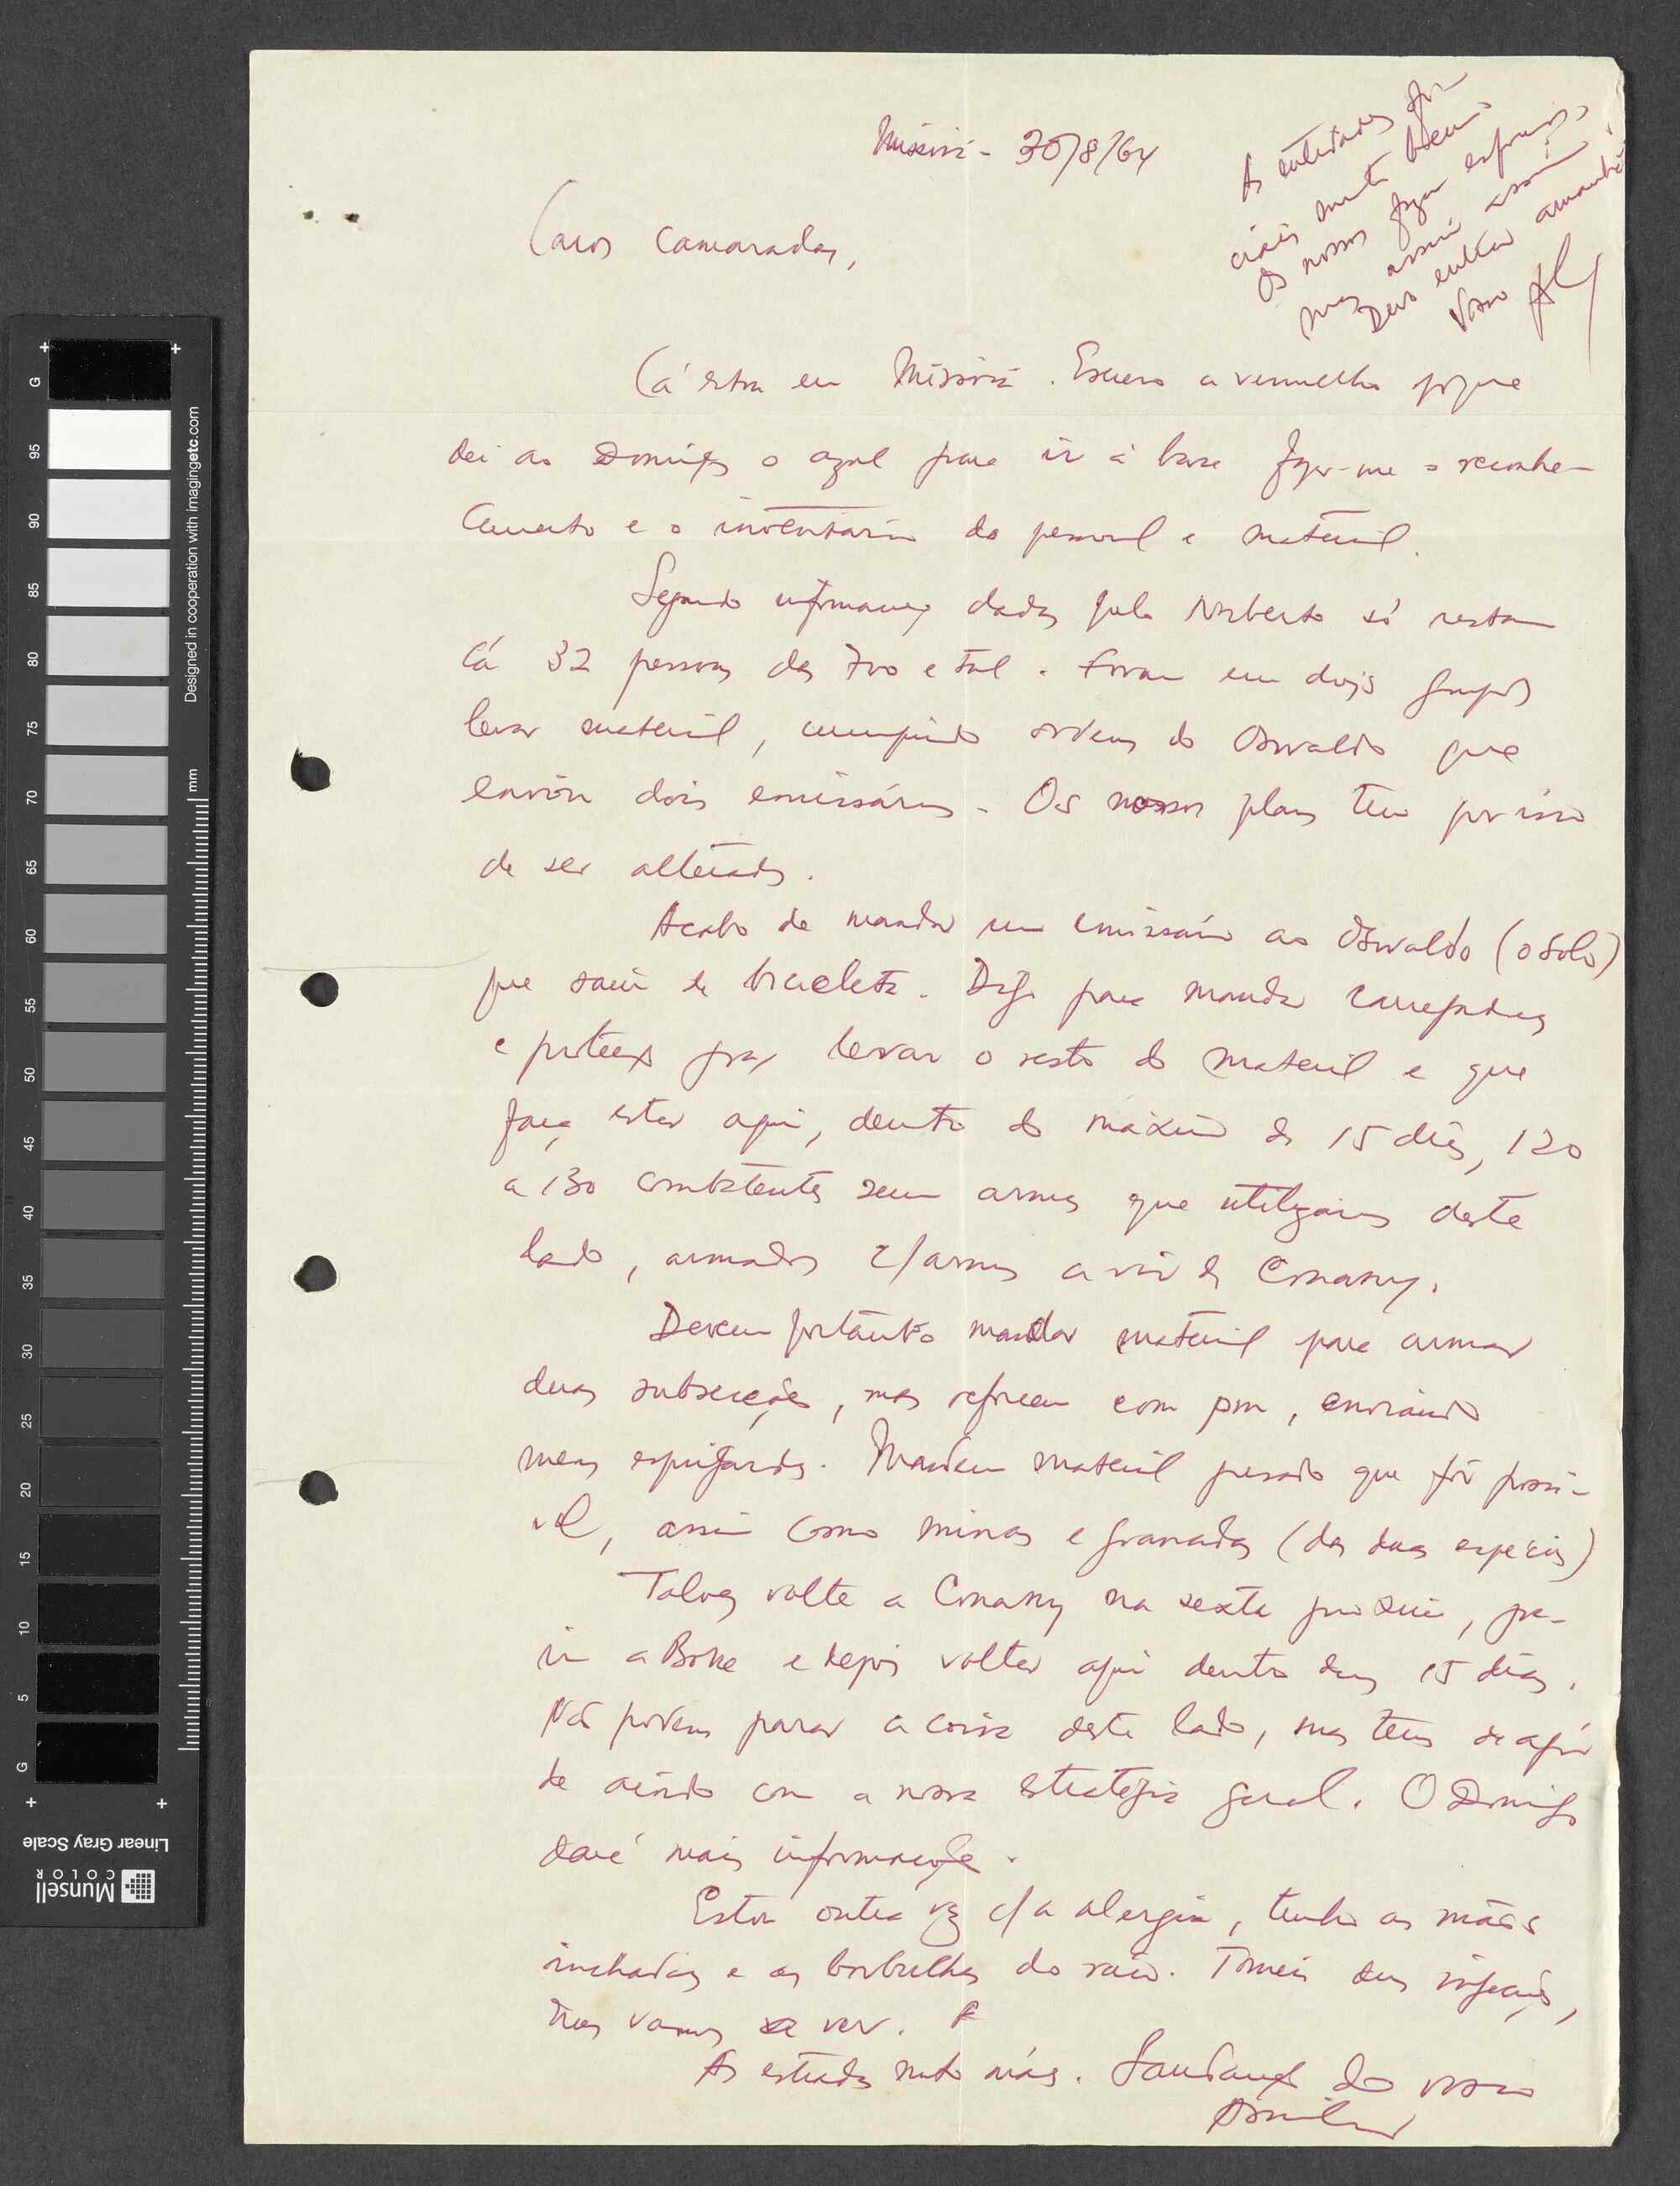 Missirá - 30/8/64
As entidades ofi-
ciais muito bem.
Os nossos fazem esforços,
mas assim assim.
Devo entrar amanhã.
Vosso AC
Caros camaradas,
Cá estou em Missirá. Escrevo a vermelho porque
dei ao Domingos o azul para ir à base fazer-me o reconhe-
cimento e o inventário do pessoal e material.
Segundo informações dadas pelo Norberto só restam
cá 32 pessoas das 700 e tal. Foram em dois grupos
levar material, cumprindo ordens do Osvaldo que
enviou dois emissários. Os nossos planos têm por isso
de ser alterados.
Acabo de mandar um emissário ao Osvaldo (o Solo)
que saiu de bicicleta. Digo para mandar carregadores
e protecção para levar o resto do material e que
faça estar aqui, dentro do máximo de 15 dias, 120
a 130 combatentes sem armas que utilizaremos deste
lado, armados c/ armas a vir de Conakry.
Devem portanto mandar material para armar
duas subsecções, mas reforcem com pm, enviando
menos espingardas. Mandem material pesado que fôr possí-
vel, assim como minas e granadas (das duas espécies)
Talvez volte a Conakry na sexta próxima, para
ir a Boke e depois voltar aqui dentro dos 15 dias.
Não podemos parar a coisa deste lado, mas temos de agir
de acôrdo com a nossa estratégia geral. O Domingos
dará mais informações.
Estou outra vez c/ a alergia, tenho as mãos
inchadas e as borbulhas do raio. Tomei duas injecções,
mas vamos a ver.
As estradas muito más. Saudações do vosso
Amílcar
Designed in cooperation with imagingetc.com
mm
G 95 90 85 80 75 70 65 60 55 50 45 40 35 30 25 20 15 10 5 G
Linear Gray Scale
Munsell
COLOR